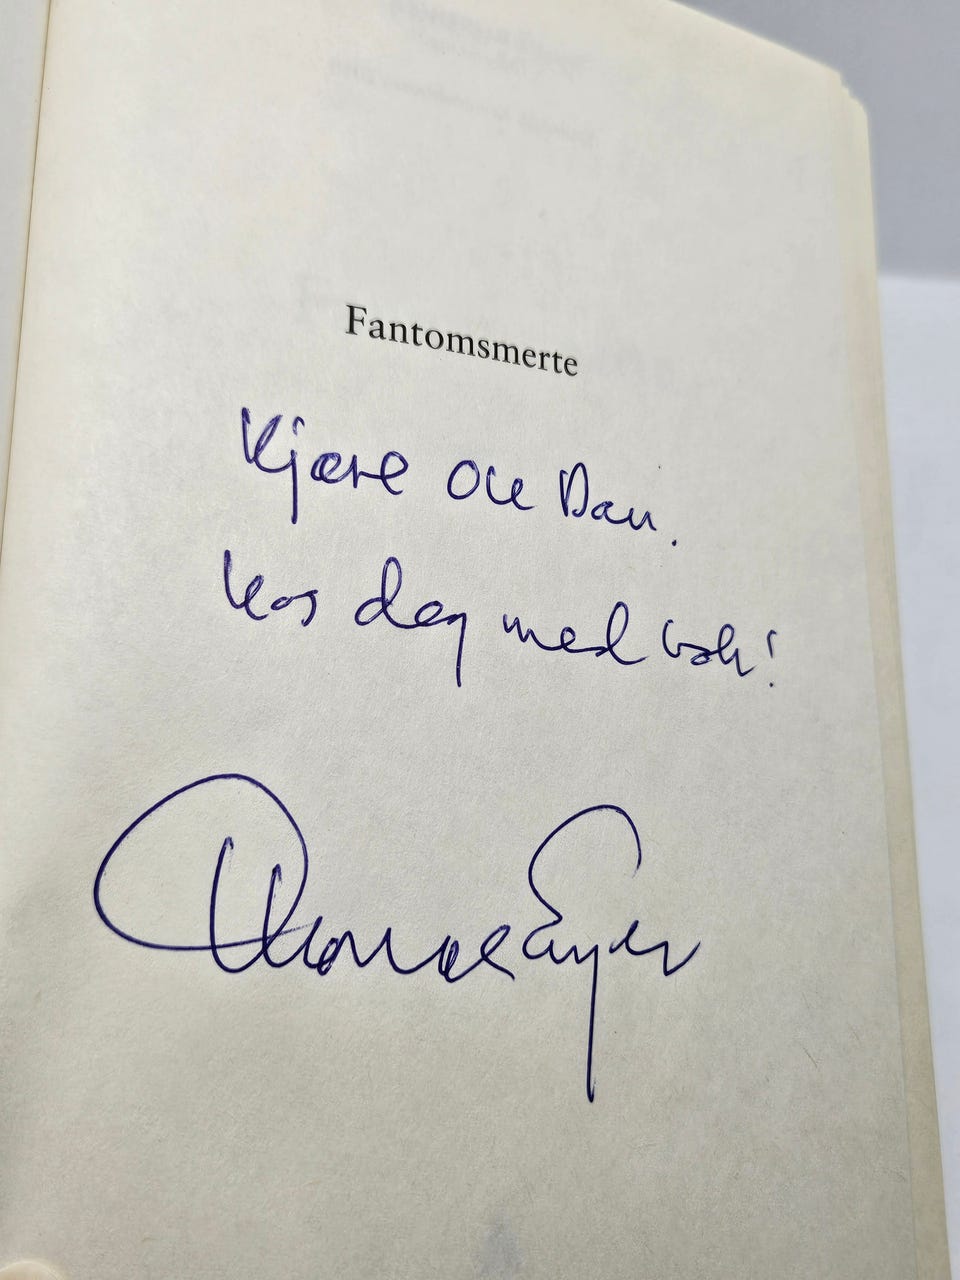 Fantomsmerte
Kjære Ole Dan.
Kos deg med bok!
Thomas Enger